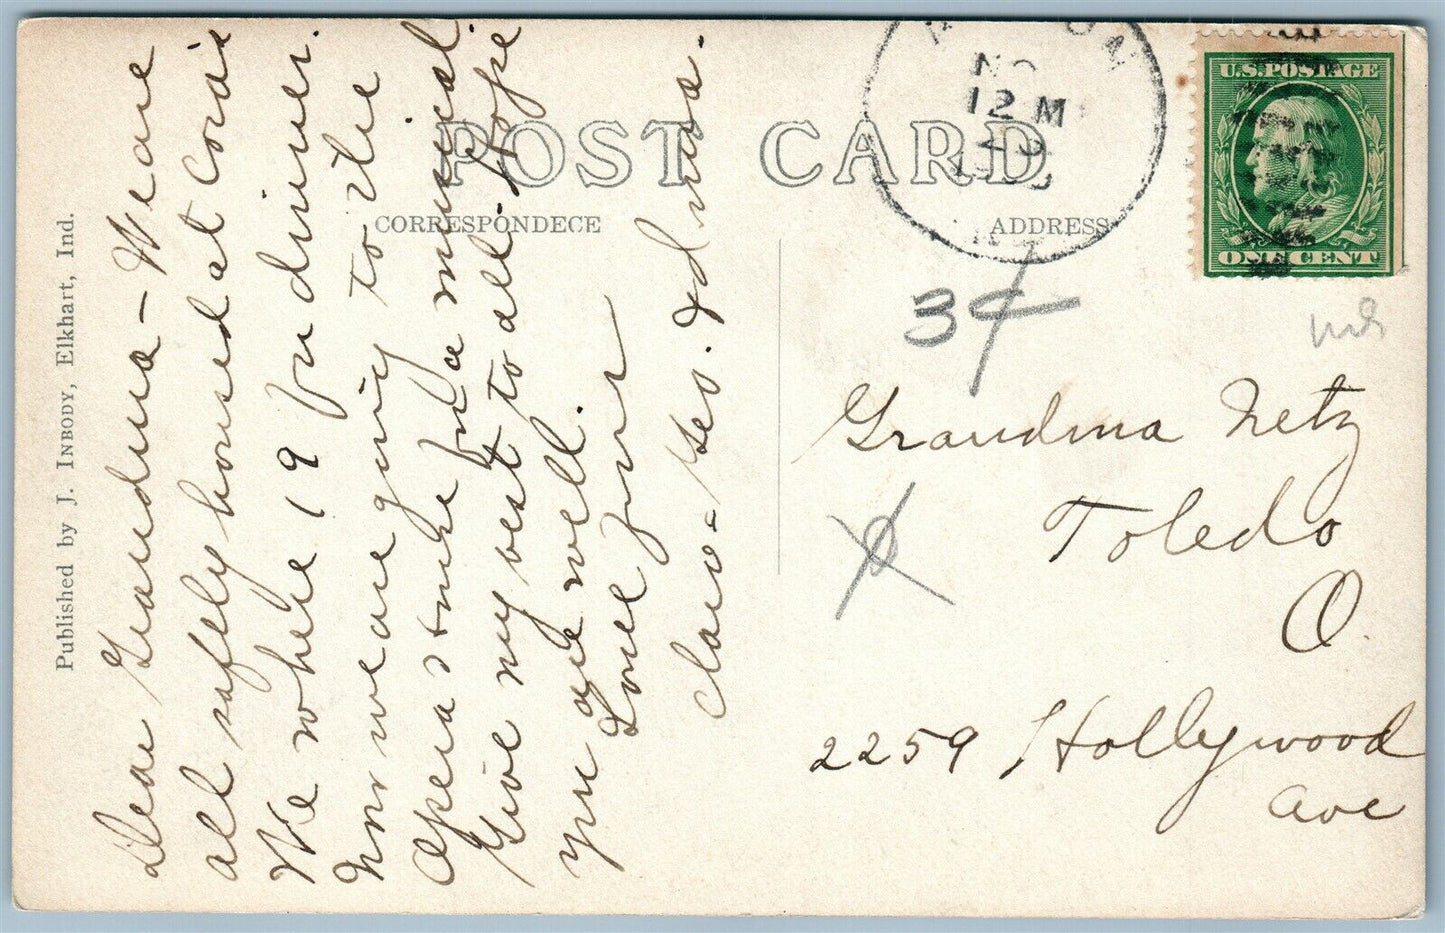 POST CARD
CORRESPONDECE
ADDRESS
Published by J. INBODY, Elkhart, Ind.
NO
12 M
U.S. POSTAGE
ONE CENT
3¢
Dear Grandma – We are
all safely housed at Cora's
We where 19 for dinner.
Now we are going to the
Opera house for a musical.
Give my best to all. Hope
you are well.
Love from
Clara – Geo. & Edna.
Grandma Netz
Toledo
O.
2259 Hollywood
Ave